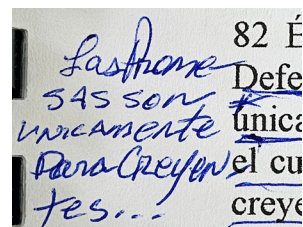 LasProme
SAS SON
UNICAMENTE
Para Creyen
tes...
82 É
Defe
única
el cu
creye